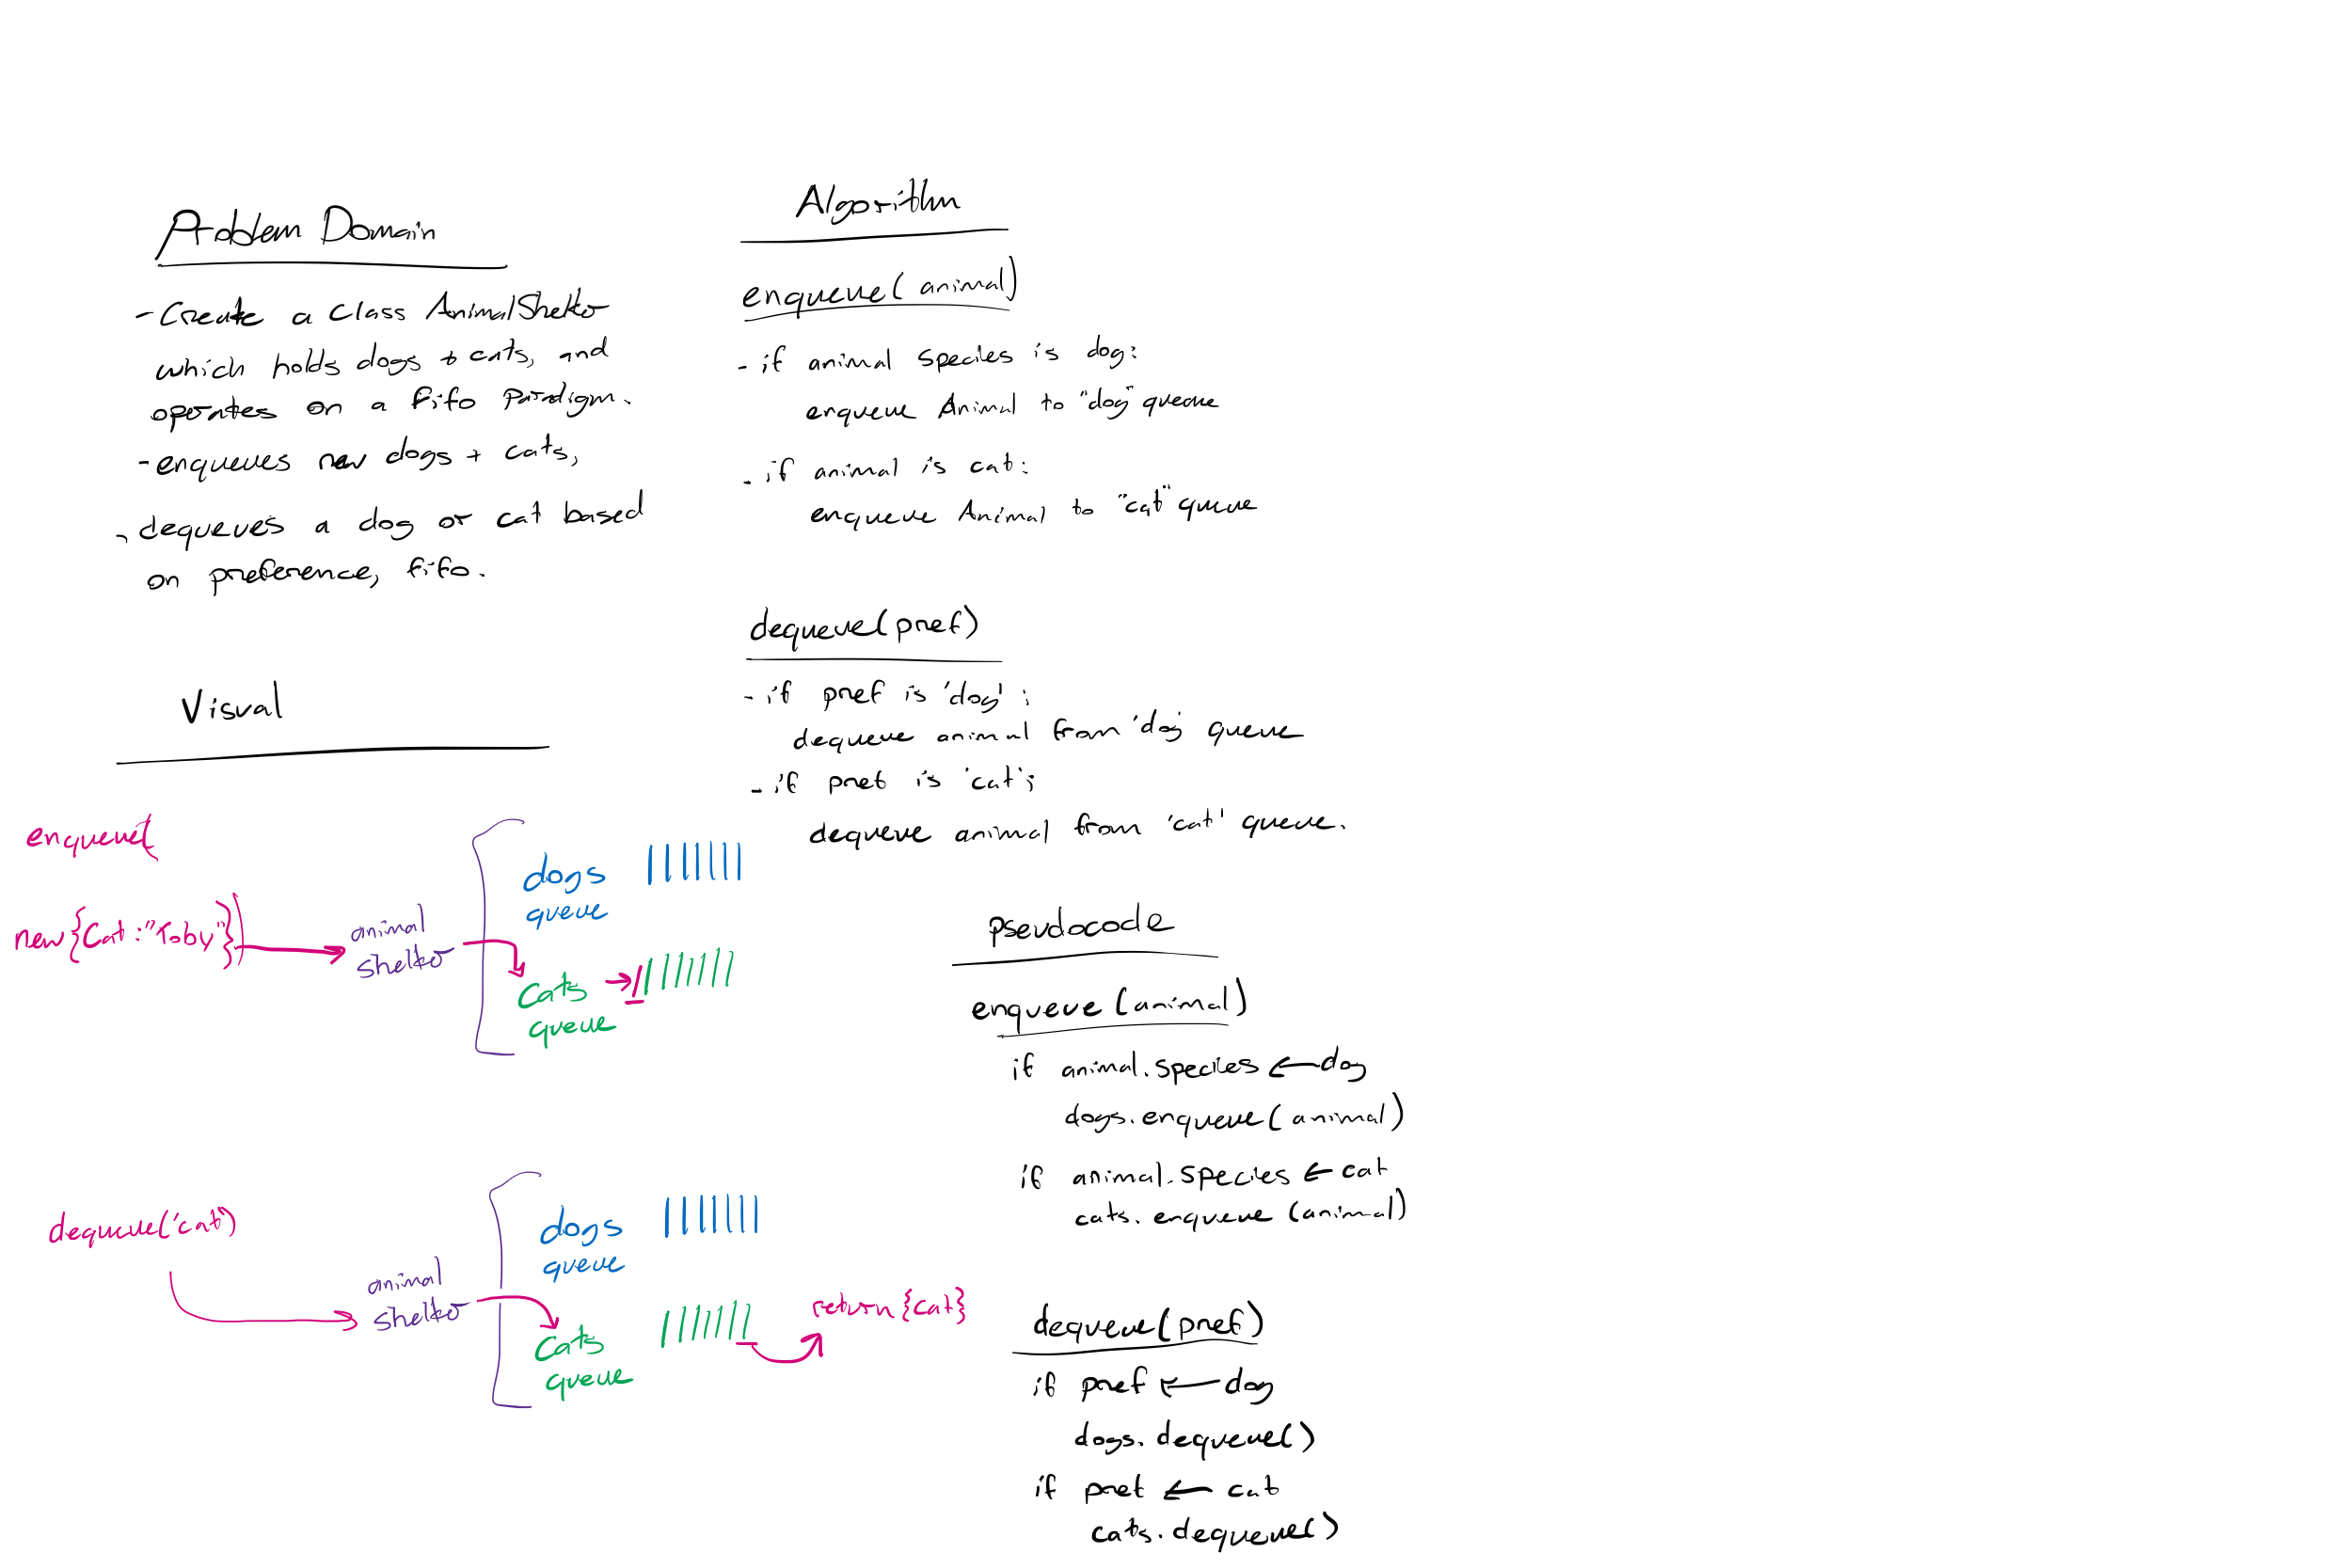 Problem Domain
- Create a class AnimalShelter
which holds dogs + cats, and
operates on a fifo paradigm.
- enqueues new dogs + cats,
- dequeues a dog or cat based
on preference, fifo.
Visual
enqueue(
new{Cat:"Toby"})
animal
shelter
dogs
queue
Cats
queue
dequeue('cat')
animal
shelter
dogs
queue
Cats
queue
return {cat}
Algorithm
enqueue(animal)
- if animal species is dog:
enqueue Animal to "dog" queue
- if animal is cat:
enqueue Animal to "cat" queue
dequeue(pref)
- if pref is 'dog':
dequeue animal from 'dog' queue
- if pref is 'cat';
dequeue animal from 'cat' queue.
pseudocode
enqueue (animal)
if animal.species ← dog
dogs.enqueue(animal)
if animal.species ← cat
cats.enqueue (animal)
dequeue(pref)
if pref ← dog
dogs.dequeue()
if pref ← cat
cats.dequeue()